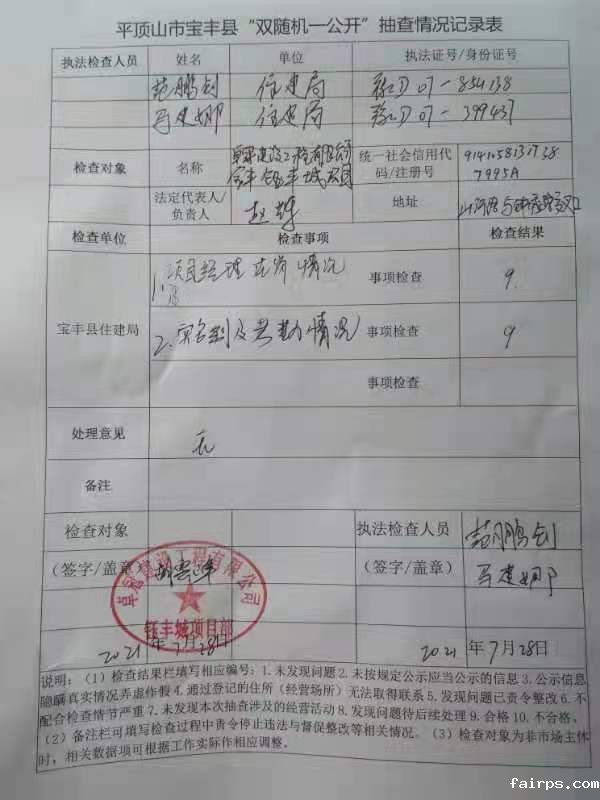 平顶山市宝丰县“双随机一公开”抽查情况记录表
执法检查人员 姓名 单位 执法证号/身份证号
范鹏剑 住建局 豫D07-854138
马建娜 住建局 豫D07-399437
检查对象 名称 卓冠建设工程有限公司 统一社会信用代码/注册号
宝丰钰丰城项目
法定代表人/负责人 地址
检查单位 检查事项 检查结果
宝丰县住建局
1、项目经理在岗情况 事项检查 9.
2、实名制及考勤情况 事项检查 9
事项检查
处理意见 无
备注
检查对象 执法检查人员 范鹏剑
(签字/盖章) (签字/盖章) 马建娜
卓冠建设工程有限公司
钰丰城项目部
2021年7月28日 2021年7月28日
说明:(1)检查结果栏填写相应编号:1.未发现问题 2.未按规定公示应当公示的信息 3.公示信息
隐瞒真实情况弄虚作假 4.通过登记的住所(经营场所)无法取得联系 5.发现问题已责令整改 6.不
配合检查情节严重 7.未发现本次抽查涉及的经营活动 8.发现问题待后续处理 9.合格 10.不合格。
(2)备注栏可填写检查过程中责令停止违法与督促整改等相关情况。(3)检查对象为非市场主体
时,相关数据项可根据工作实际作相应调整。
fairps.com